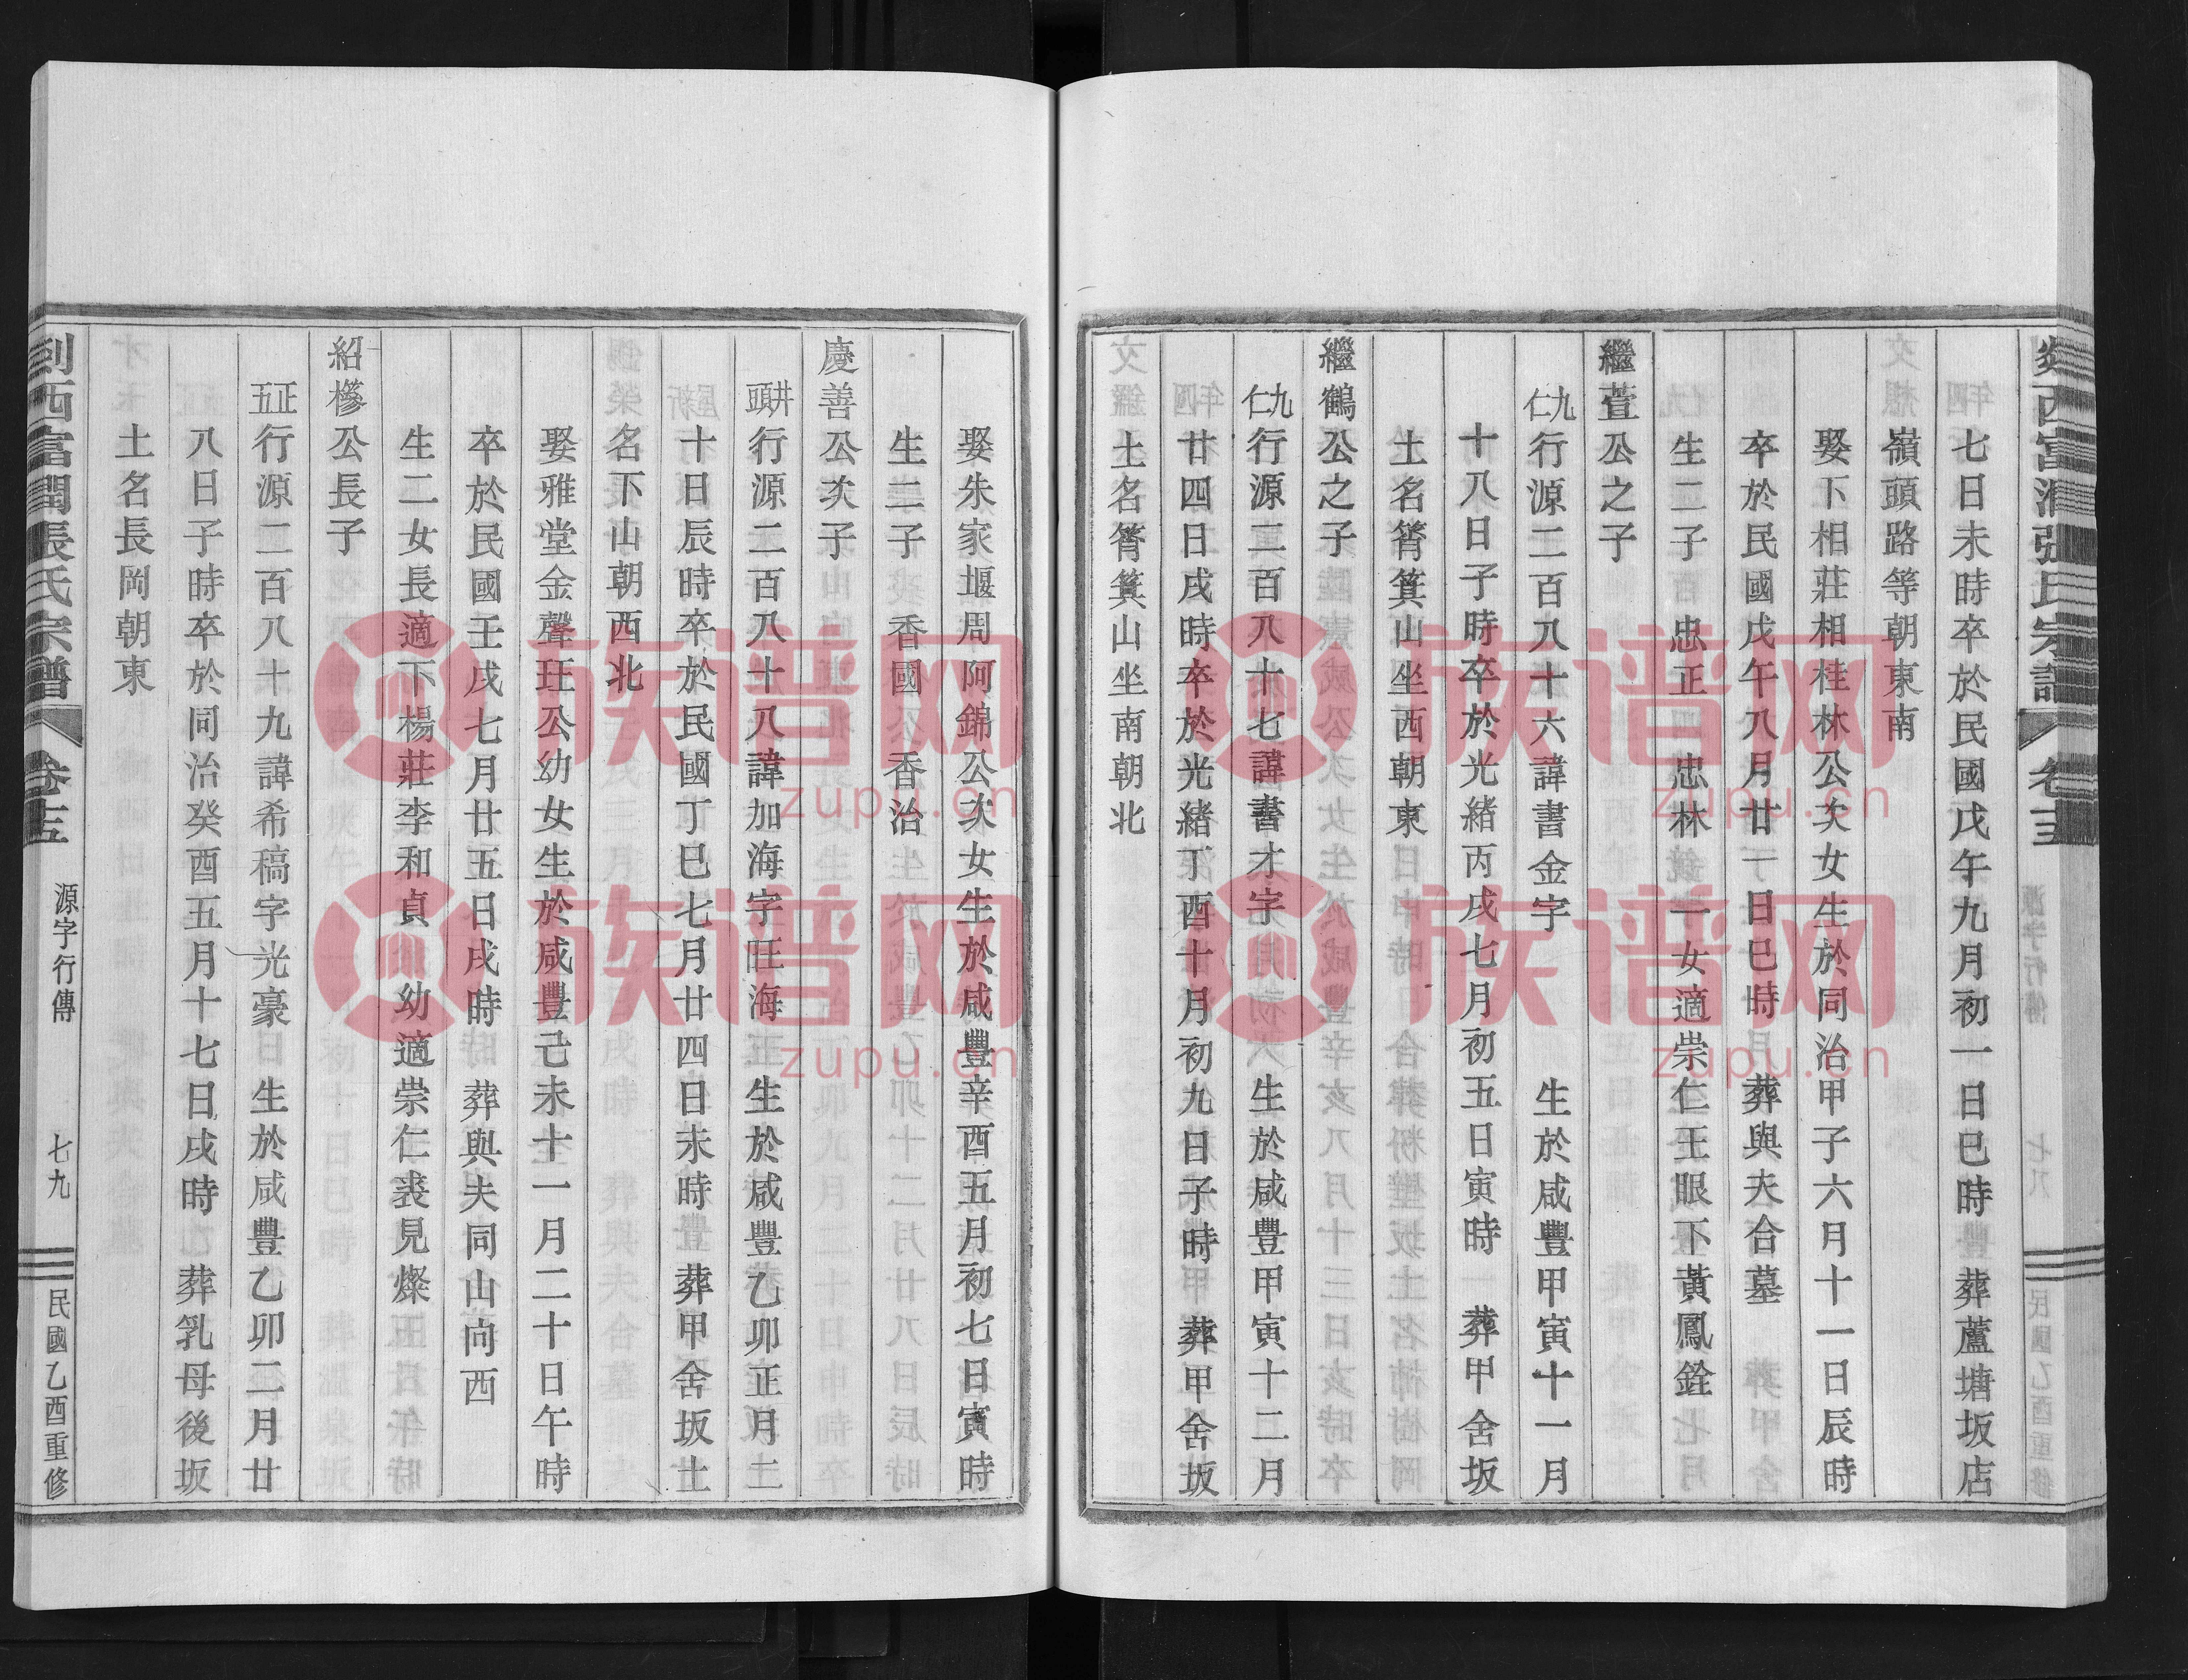 七日未時卒於民國戊午九月初一日巳時　葬蘆塘坂店
嶺頭路等朝東南
娶下相莊相桂林公次女生於同治甲子六月十一日辰時
卒於民國戊午八月廿一日巳時　葬與夫合墓
生二子　忠正　忠林　一女適崇仁王眼下黃鳳銓
繼萱公之子
九仁行源二百八十六諱書金字　生於咸豐甲寅十一月
十八日子時卒於光緒丙戌七月初五日寅時　葬甲舍坂
土名筲箕山坐西朝東
繼鶴公之子
九仁行源二百八十七諱書才字　生於咸豐甲寅十二月
廿四日戌時卒於光緒丁酉十月初九日子時　葬甲舍坂
土名筲箕山坐南朝北
娶朱家堰周阿錦公次女生於咸豐辛酉五月初七日寅時
生二子　香國　香治
慶善公次子
井頭行源二百八十八諱加海字旺海　生於咸豐乙卯正月二
十日辰時卒於民國丁巳七月廿四日未時　葬甲舍坂土
名下山朝西北
娶雅堂金聲玨公幼女生於咸豐己未十一月二十日午時
卒於民國壬戌七月廿五日戌時　葬與夫同山向西
生二女長適下楊莊李和貞　幼適崇仁裘見燦
紹槮公長子
正五行源二百八十九諱希稿字光豪　生於咸豐乙卯二月廿
八日子時卒於同治癸酉五月十七日戌時　葬乳母後坂
土名長岡朝東
剡西富潤張氏宗譜　卷十三　源字行傳　七九　民國乙酉重修
族谱网
zupu.cn
族谱网
zupu.cn
族谱网
zupu.cn
族谱网
zupu.cn